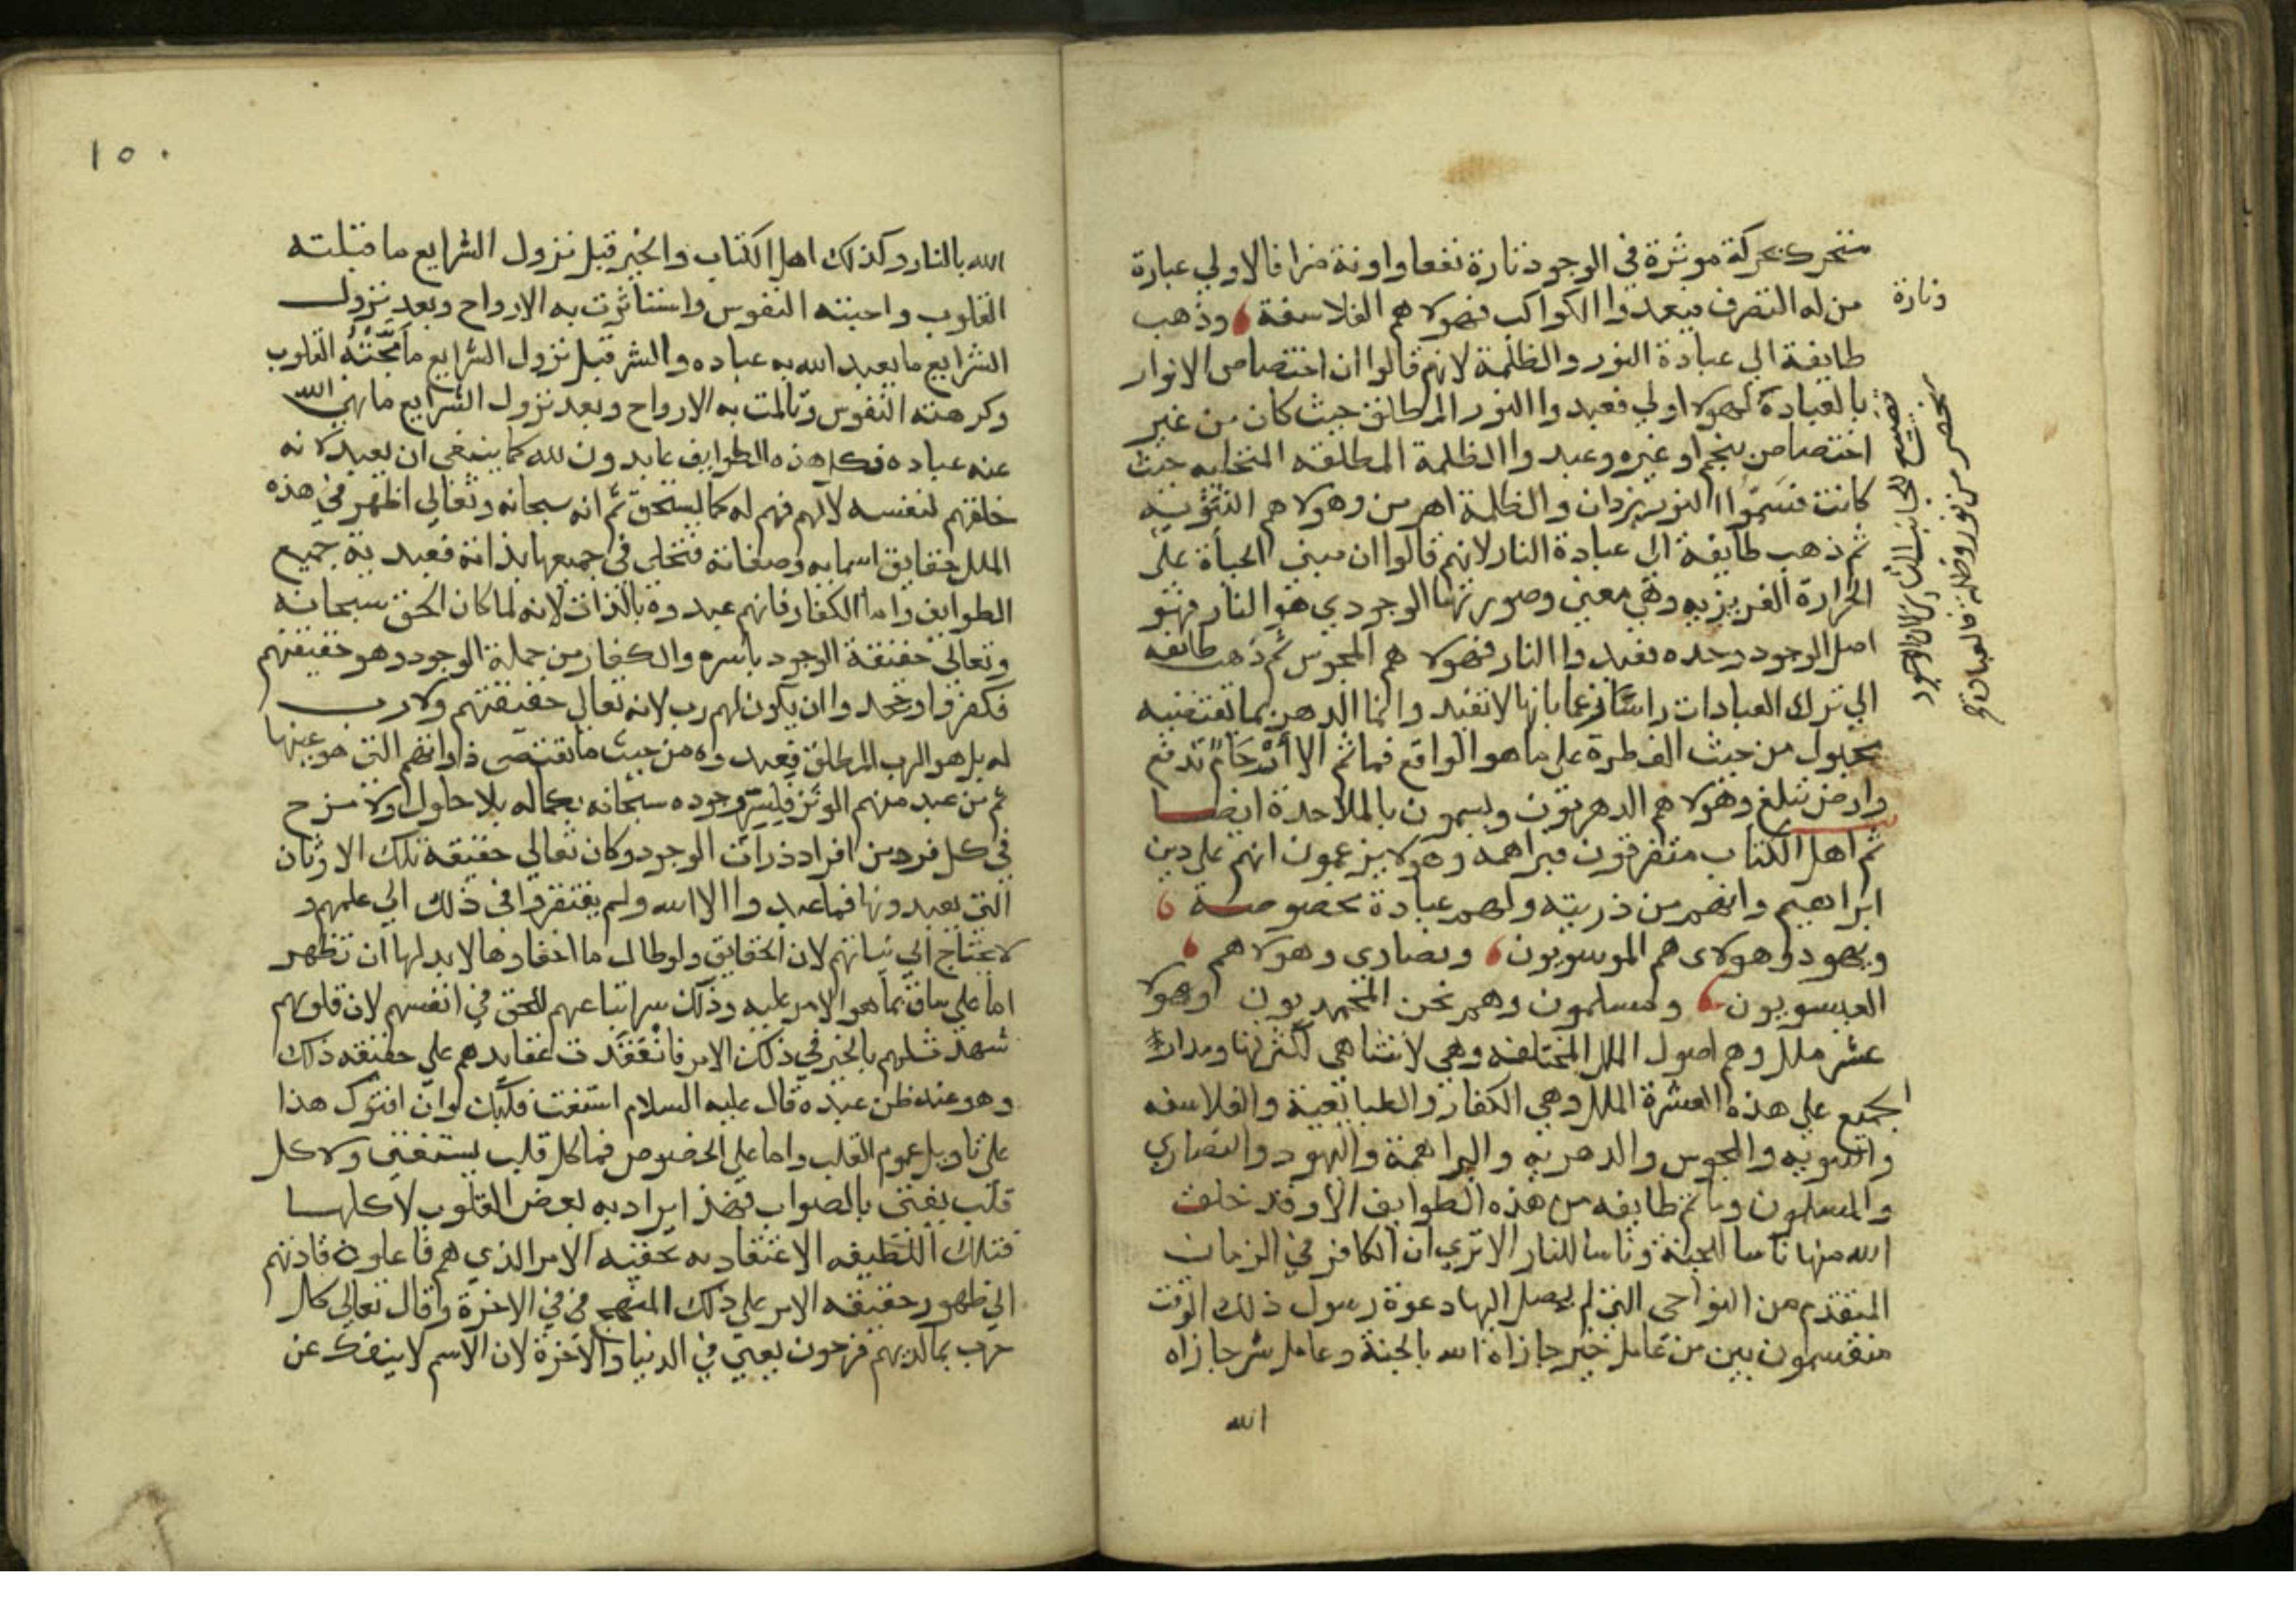 متحرك بحركة موثرة في الوجود تارة نفعا واونة ضرا فالاولي عبارة
من له التصرف فيعبدوا الكواكب فهولا هم الفلاسفة وذهب
وتارة
طايفة الي عبادة النور والظلمة لانهم قالوا ان اختصاص الانوار
بالعبادة لهولا اولي فعبدوا النور المطلق حيث كان من غير
اختصاص بنجم او غيره وعبدوا الظلمة المطلقه المتجليه حيث
كانت فسموا النور يزدان والظلمة اهرمن وهولا هم الثنويه
ثم ذهب طايفة الي عبادة النار لانهم قالوا ان مبني الحياة علي
الحرارة الغريزيه وهي معني وصورتها الوجودي هو النار فهو
اصل الوجود وحده فعبدوا النار فهولا هم المجوس ثم ذهب طائفه
الي ترك العبادات راسًا زعما بانها لا تفيد وانما الدهر بما تقتضيه
مجبول من حيث الفطرة علي ما هو الواقع فما ثم الا أَرْحَامٌ تدفع
وارض تبلع وهولا هم الدهريون ويسمون بالملاحدة ايضا
ثم اهل الكتاب متفرقون فبراهمه وهولا يزعمون انهم علي دين
ابراهيم وانهم من ذريته ولهم عبادة مخصوصة
ويهود وهولاى هم الموسويون ونصاري وهولا هم
العيسويون ومسلمون وهم نحن المحمديون وهولا
عشر ملل وهم اصول الملل المختلفه وهي لا تتناهي لكثرتها ومدار
الجميع علي هذه العشرة الملل وهي الكفار والطبايعية والفلاسفه
والثنويه والمجوس والدهريه والبراهمة واليهود والنصاري
والمسلمون وما ثم طايفه من هذه الطوايف الا وقد خلق
الله منها ناسا للجنة وناسا للنار الا تري ان الكافر في الزمان
المتقدم من النواحي التي لم يصل اليها دعوة رسول ذلك الوقت
منقسمون بين من عامل خير جازاه الله بالجنة وعامل شر جازاه
الله
١٥٠
الله بالنار وكذلك اهل الكتاب والخير قبل نزول الشرايع ما قبلته
القلوب واحبته النفوس واستاثرت به الارواح وبعد نزول
الشرايع ما يعبد الله به عباده والشر قبل نزول الشرايع ما مَجَّتْهُ القلوب
وكرهته النفوس وتالمت به الارواح وبعد نزول الشرايع ما نهي الله
عنه عباده فكل هذه الطوايف عابدون لله كما ينبغي ان يعبد لانه
خلقهم لنفسه لا لهم فهم له كما يستحق ثم انه سبحانه وتعالي اظهر في هذه
الملل حقايق اسمايه وصفاته فتجلي في جميعها بذاته فعبدته جميع
الطوايف واما الكفار فانهم عبدوه بالذات لانه لما كان الحق سبحانه
وتعالي حقيقة الوجود باسره والكفار من جملة الوجود وهو حقيقتهم
فكفروا وجحدوا ان يكون لهم رب لانه تعالي حقيقتهم ولا رب
له بل هو الرب المطلق فعبدوه من حيث ما تقتضي ذواتهم التي هو عينها
ثم من عبد منهم الوثن فلسر وجوده سبحانه بكماله بلا حلول ولا مزح
في كل فرد من افراد ذرات الوجود وكان تعالي حقيقة تلك الاوثان
التي يعبدونها فما عبدوا الا الله ولم يفتقروا في ذلك الي علمهم و
لا يحتاج الي نياتهم لان الحقايق ولو طال ما اخفاوها لا بد لها ان تظهر
اما علي ساق بما هو الامر عليه وذلك سر اتباعهم للحق في انفسهم لان قلوبهم
شهدت لهم بالخير في ذلك الامر فانعقدت عقايدهم علي حقيقة ذلك
وهو عند ظن عبده قال عليه السلام استفت قلبك لو ان افتوك هذا
علي تاويل عموم القلب واما علي الخصوص فما كل قلب يستفتي ولا كل
قلب يفتي بالصواب فهذا يراد به بعض القلوب لا كلها
فتلك اللطيفه الاعتقاديه بحقيقة الامر الذي هم فاعلون قادتهم
الي ظهور حقيقة الامر علي ذلك المنهج في الاخرة وقال تعالي كل
حزب بما لديهم فرحون يعني في الدنيا والاخرة لان الاسم لا ينفك عن